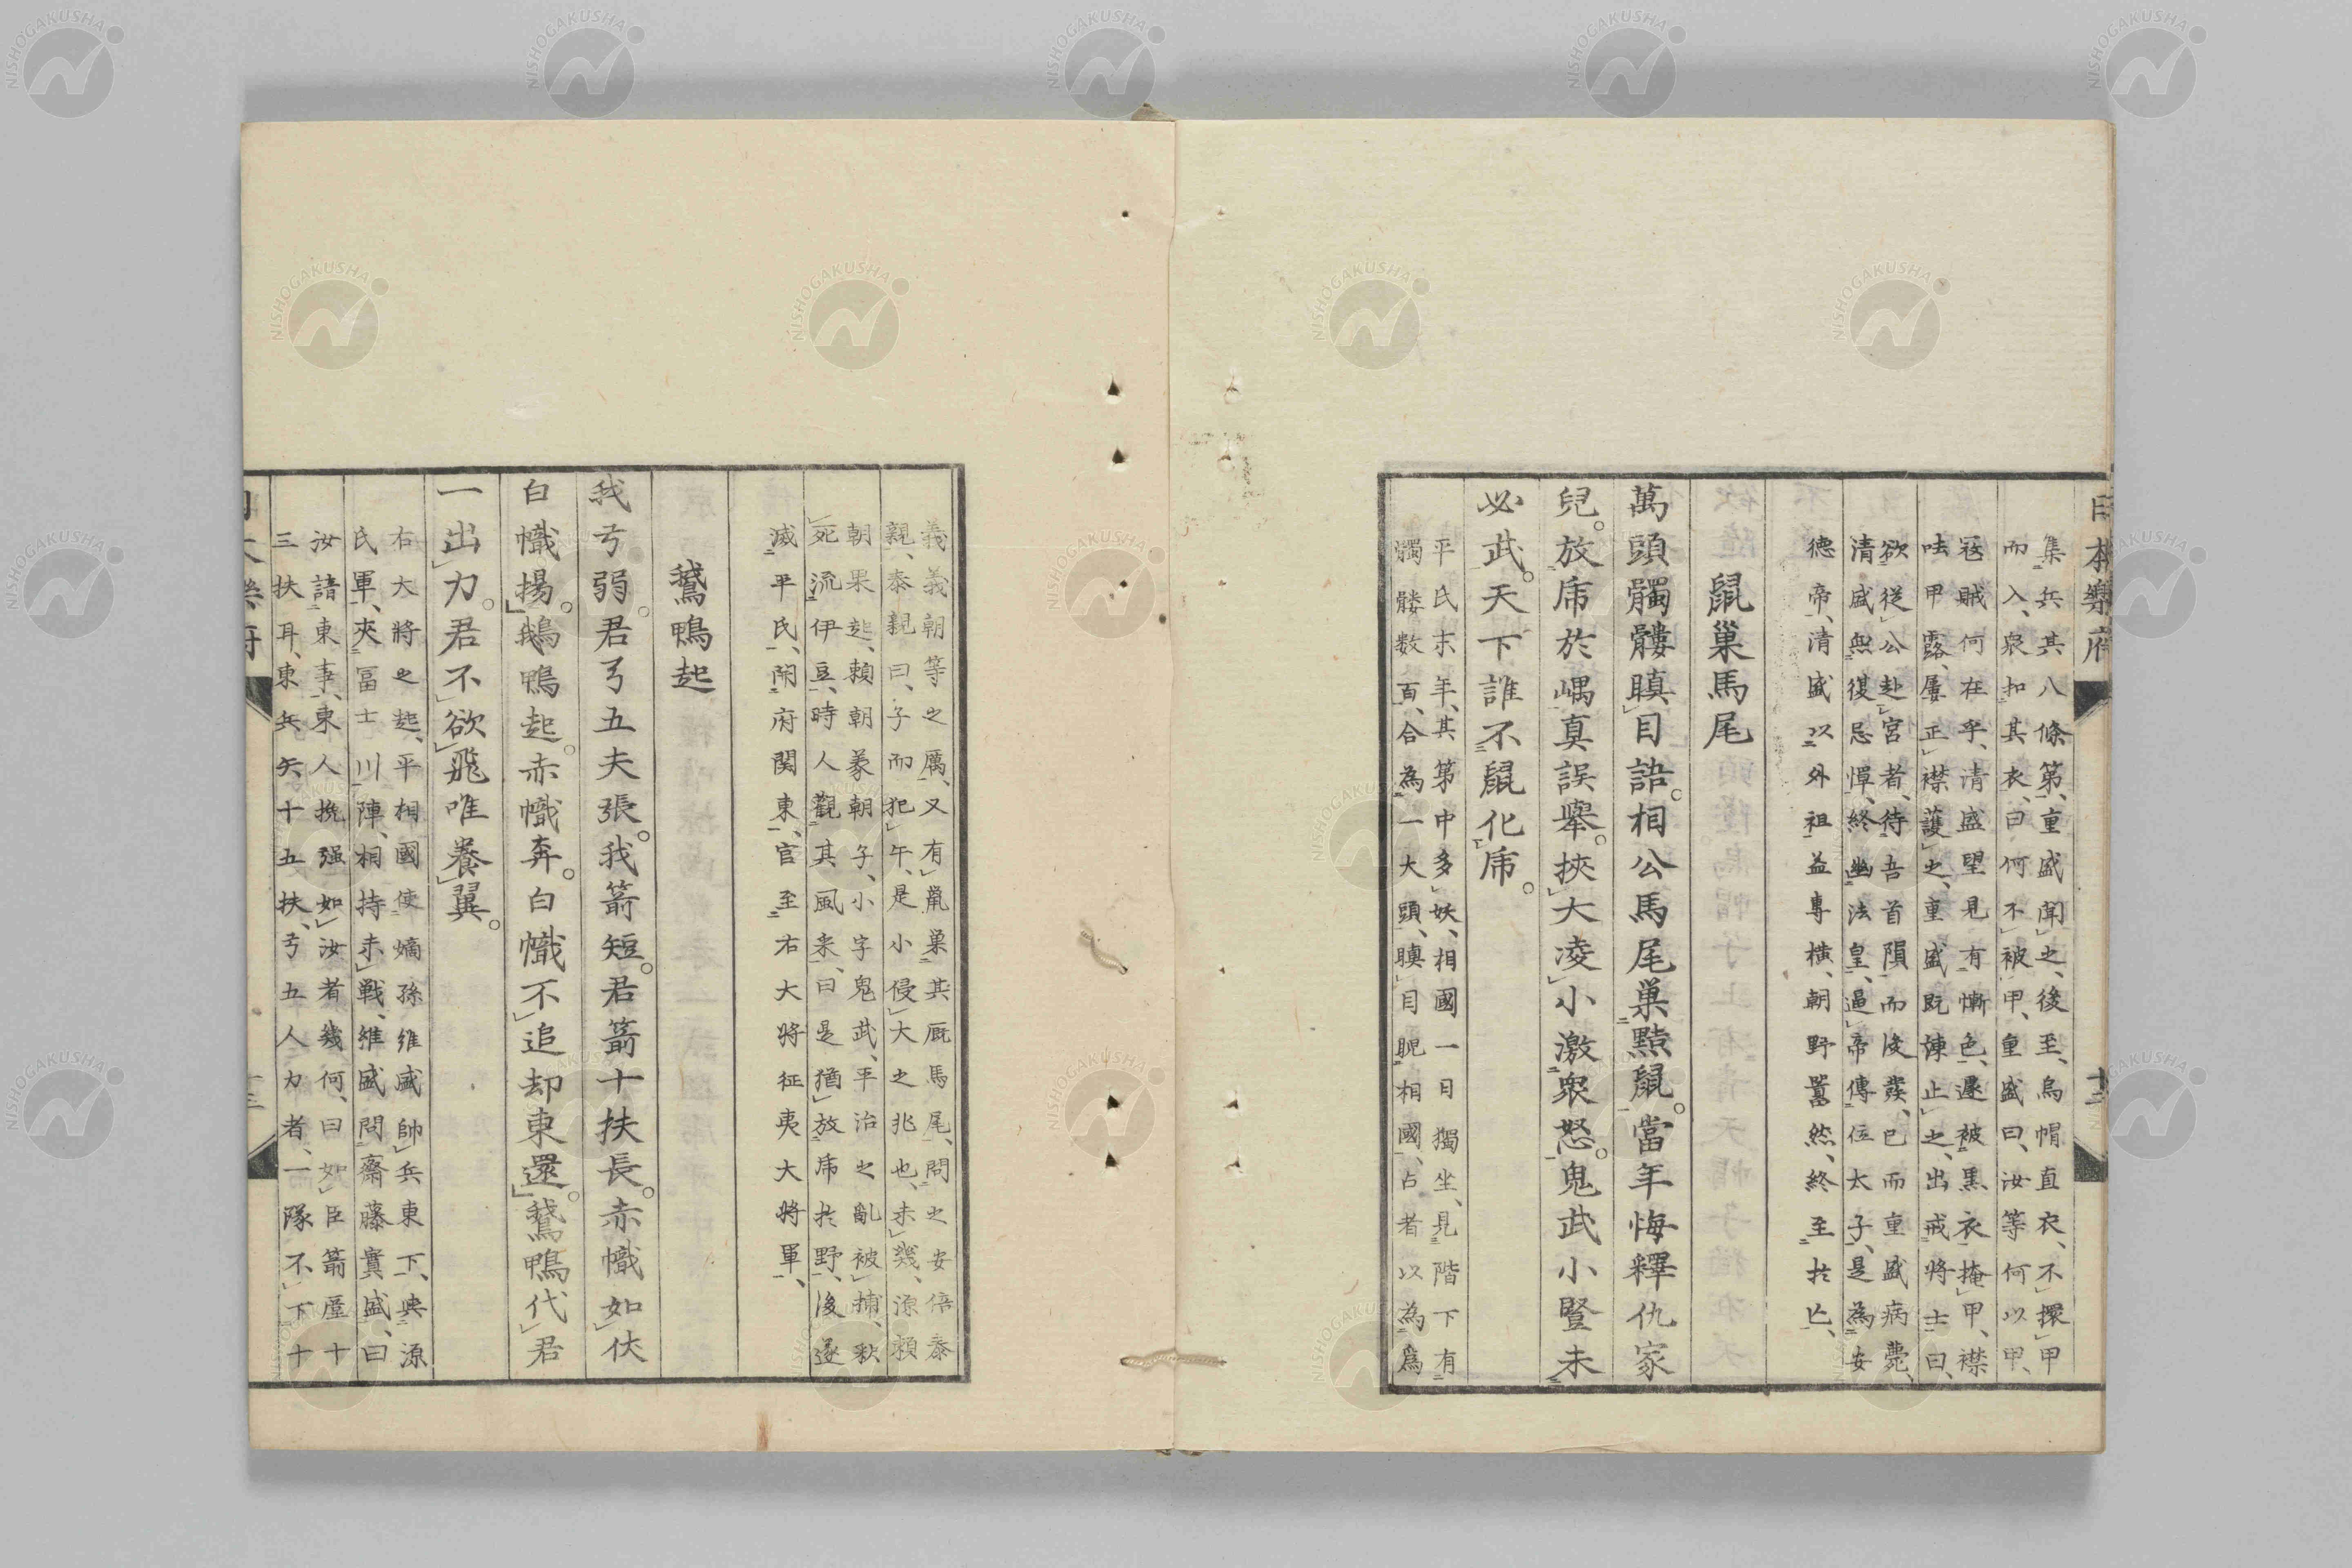 日本樂府
十三
集兵其八條第、重盛聞之、後至、烏帽直衣、不擐甲
而入、衆扣其衣、曰何不被甲、重盛曰、汝等何以甲、
寇賊何在乎、清盛望見有慚色、遽被黒衣掩甲、襟
呿甲露、屢正襟護之、重盛既諫止之、出戒將士曰、
欲從公赴宮者、待吾首隕而後發、已而重盛病薨、
清盛無復忌憚、終幽法皇、逼帝傳位太子、是為安
德帝、清盛以外祖益專横、朝野囂然、終至於亡、
鼠巢馬尾
萬頭髑髏瞋目語。相公馬尾巢黠鼠。當年悔釋仇家
兒。放虎於嵎真誤舉。挾大凌小激衆怒。鬼武小豎未
必武。天下誰不鼠化虎。
平氏末年、其第中多妖、相國一日獨坐、見階下有
髑髏数百、合為一大頭、瞋目睨相國、占者以為爲
義義朝等之厲、又有鼠巢其厩馬尾、問之安倍泰
親、泰親曰、子而犯午、是小侵大之兆也、未幾、源頼
朝果起、頼朝義朝子、小字鬼武、平治之亂被捕、宥
死流伊豆、時人觀其風采、曰是猶放虎於野、後遂
滅平氏、開府関東、官至右大将征夷大将軍、
鵞鴨起
我弓弱。君弓五夫張。我箭短。君箭十扶長。赤幟如伏
白幟揚。鵞鴨起。赤幟奔。白幟不追却東還。鵞鴨代君
一出力。君不欲飛唯養翼。
右大將之起、平相國使嫡孫維盛帥兵東下、與源
氏軍、夾冨士川陣、相持未戰、維盛問齋藤實盛、曰
汝諳東事、東人挽强如汝者幾何、曰如臣箭厪十
三扶耳、東兵矢十五扶、弓五人力者、一隊不下十